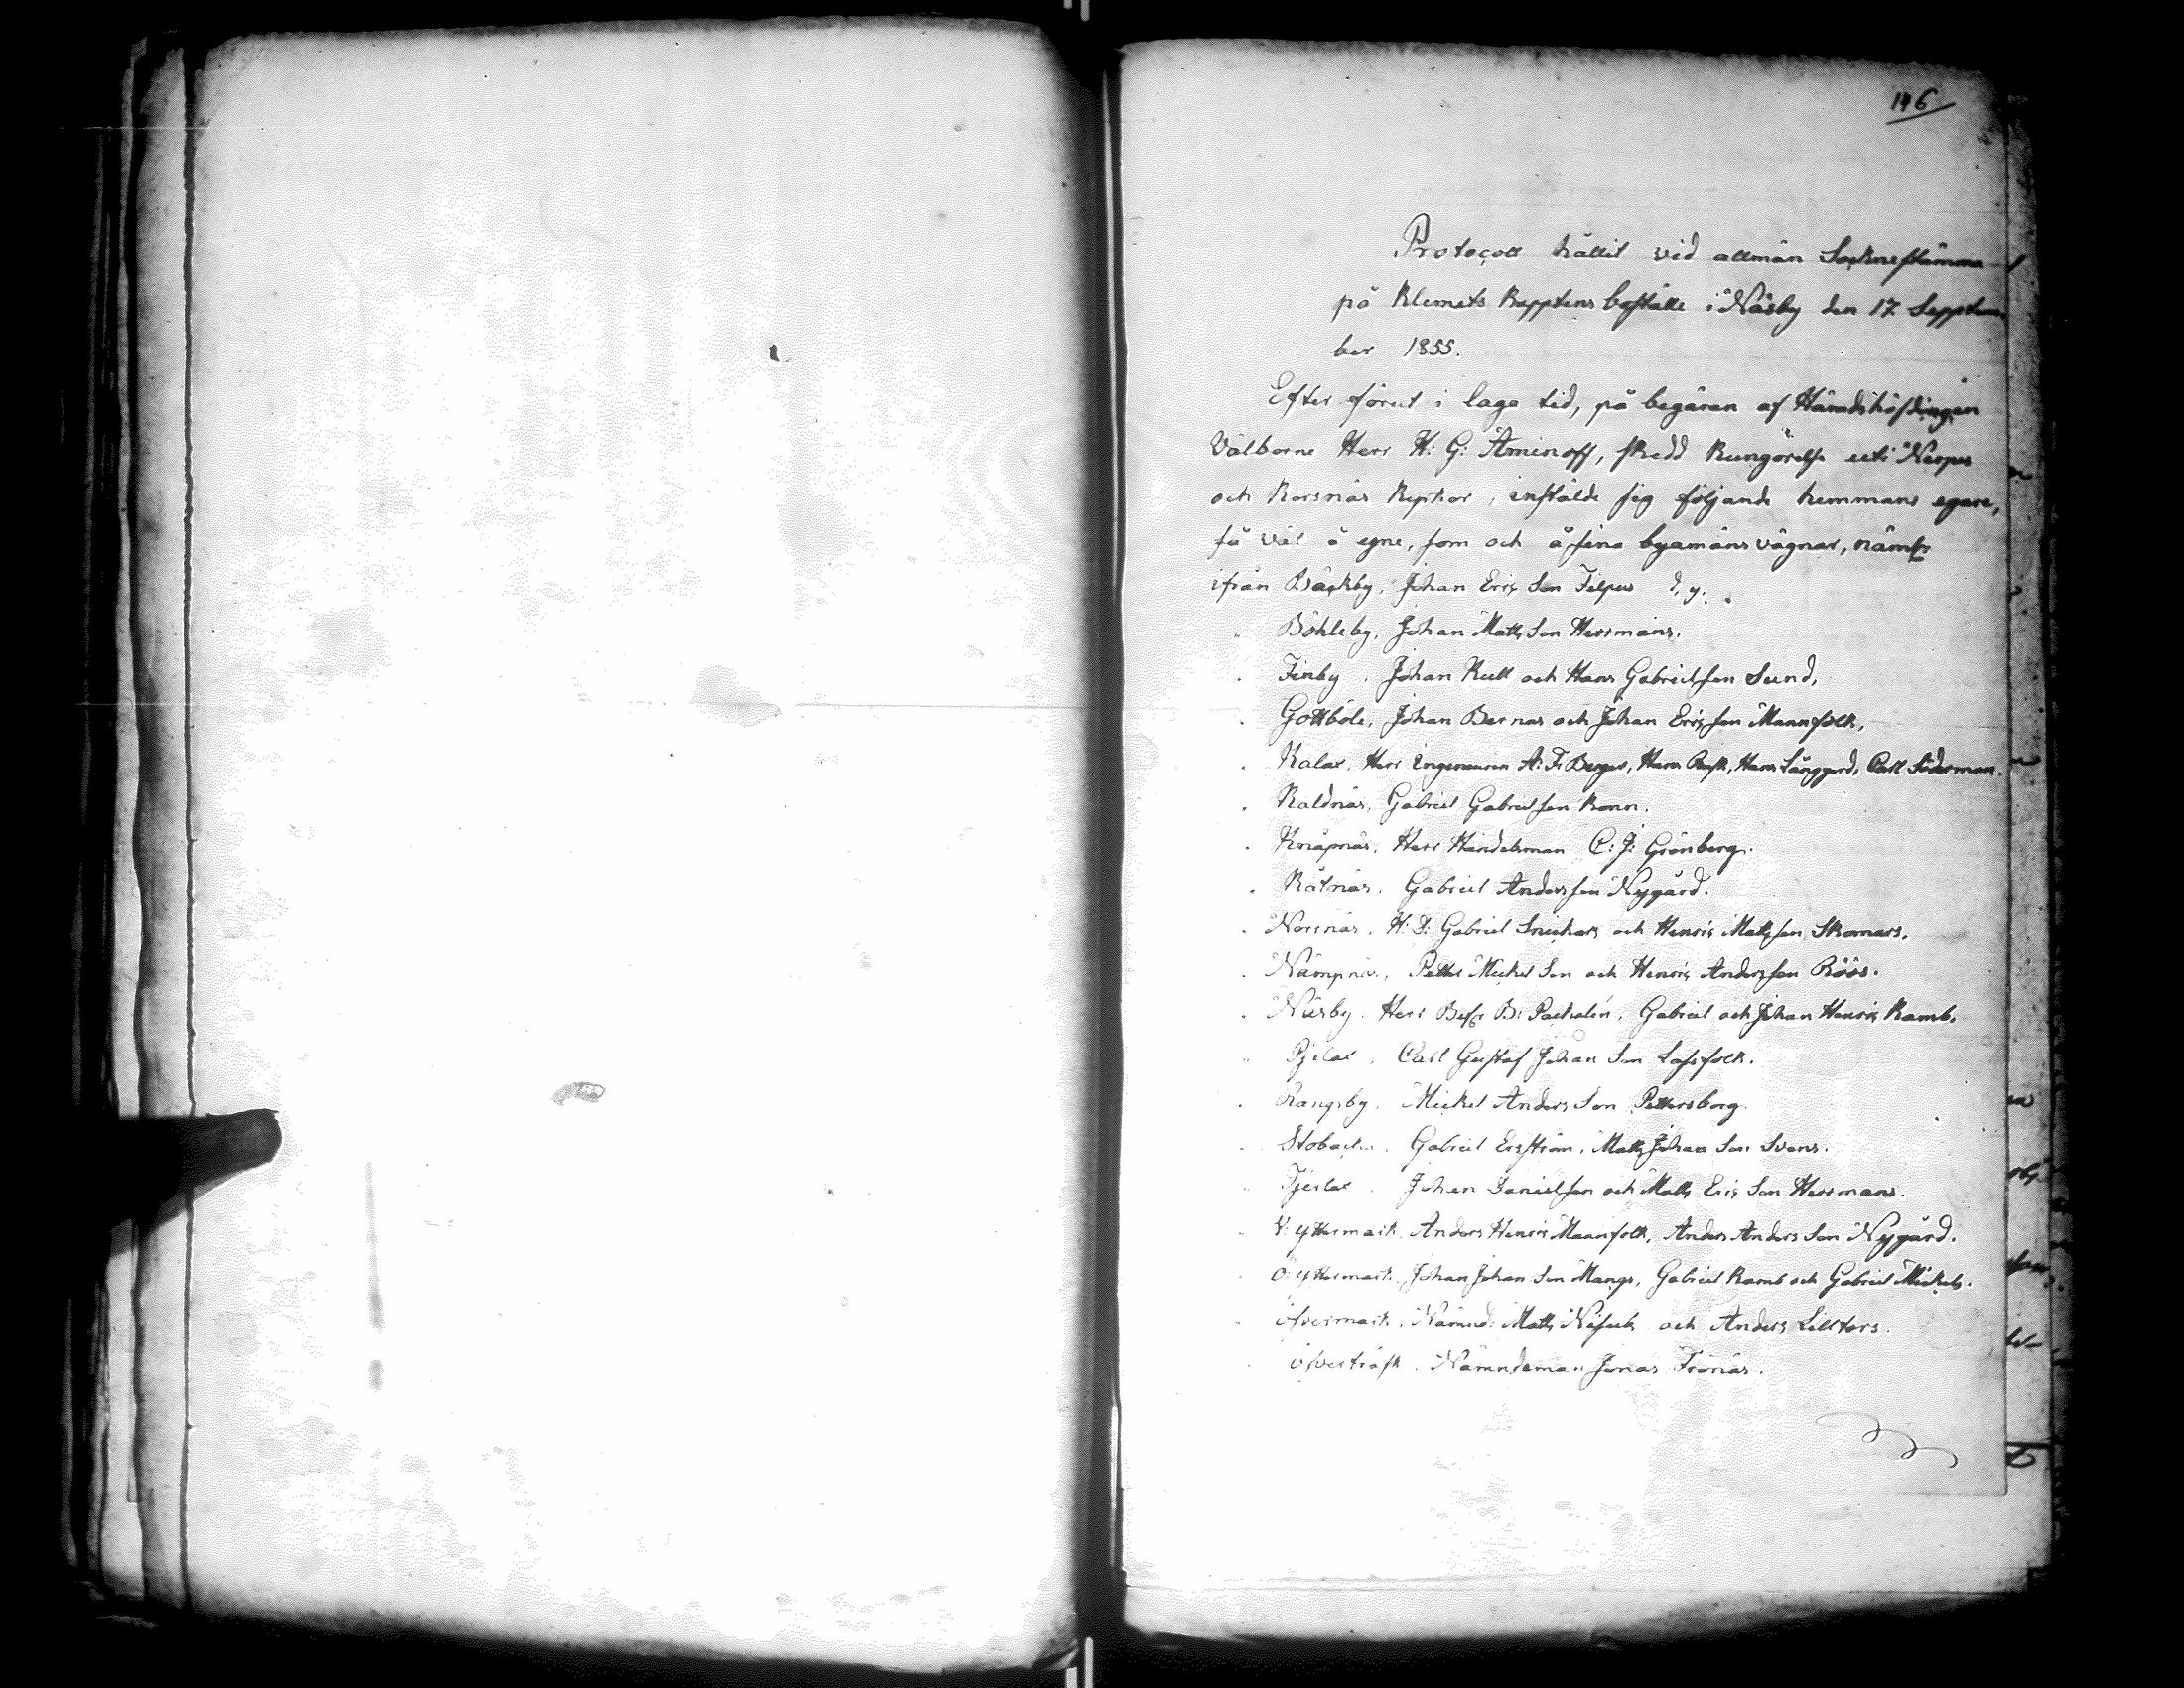 116
Protocoll hållit vid allmän Socknestämma
på Klemets Kapptens boställe i Näsby den 17 Septem
ber 1855.
Efter förut i laga tid, på begäran af Häradshöfdingen
Välborne Herr H: G: Aminoff, skedd Kungörelse uti Nerpes
och Korsnäs Kyrkor, instälde sig följande hemmans egare,
så väl å egne, som och å sina byamäns vägnar, näml:
ifrån Bäckby, Johan Erics Son Filpus d. y.
" Böhleby, Johan Matts Son Hermans.
" Finby, Johan Kull och Hans Gabrielsson Sund,
" Gottböle, Johan Bernas och Johan Ericsson Mannfolk,
" Kalax, Herr Ingenieuren A: F: Berger, Hans Långgård, Carl Söderman.
" Kaldnäs, Gabriel Gabrielsson Ronn.
" Knåpnäs, Herr Handelsman C: J: Grönberg.
" Råtnäs, Gabriel Andersson Nygård.
" Norrnäs, H: D: Gabriel Snickars och Henric Matsson Skomars.
" Nämpnäs, Petter Mickel Son och Henric Andersson Röös.
" Näsby, Herr B: Pachalén, Gabriel och Johan Henric Ramb.
" Pjelax, Carl Gustaf Johan Son Lassfolk.
" Rangsby, Mickel Anders Son Pettersborg.
" Stobacka, Gabriel Erström, Matts Johan Son Svens.
" Tjerlax, Johan Danielsson och Matts Eric Son Hermans.
" V: Yttermark, Anders Henric Mannfolk, Anders Anders Son Nygård.
" Ö: Yttermark, Johan Johan Son Mangs, Gabriel Ramb och Gabriel Mickels.
" Öfvermark, Nämnd: Matts och Anders Lilltors.
" Öfverträsk, Nämndeman Jonas Frönäs.